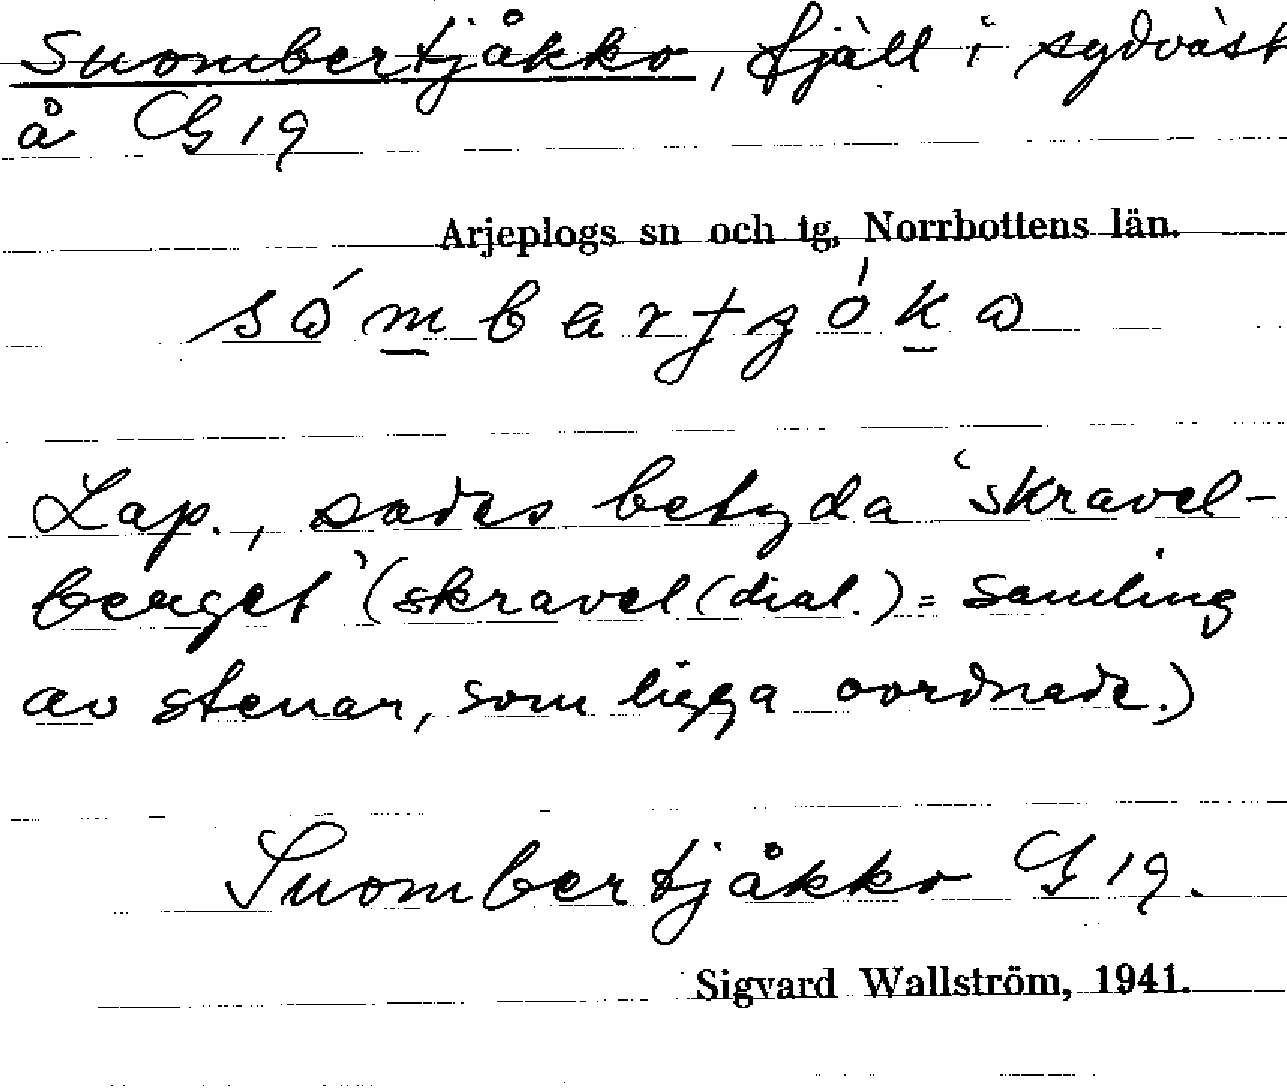 Suombertjåkko, fjäll i sydväst
å G 19
Arjeplogs sn och tg, Norrbottens län.
Lap., sades betyda 'skravel-
berget' (skravel (dial.) = samling
av stenar, som ligga oordnade.)
Suombertjåkko G 19.
Sigvard Wallström, 1941.